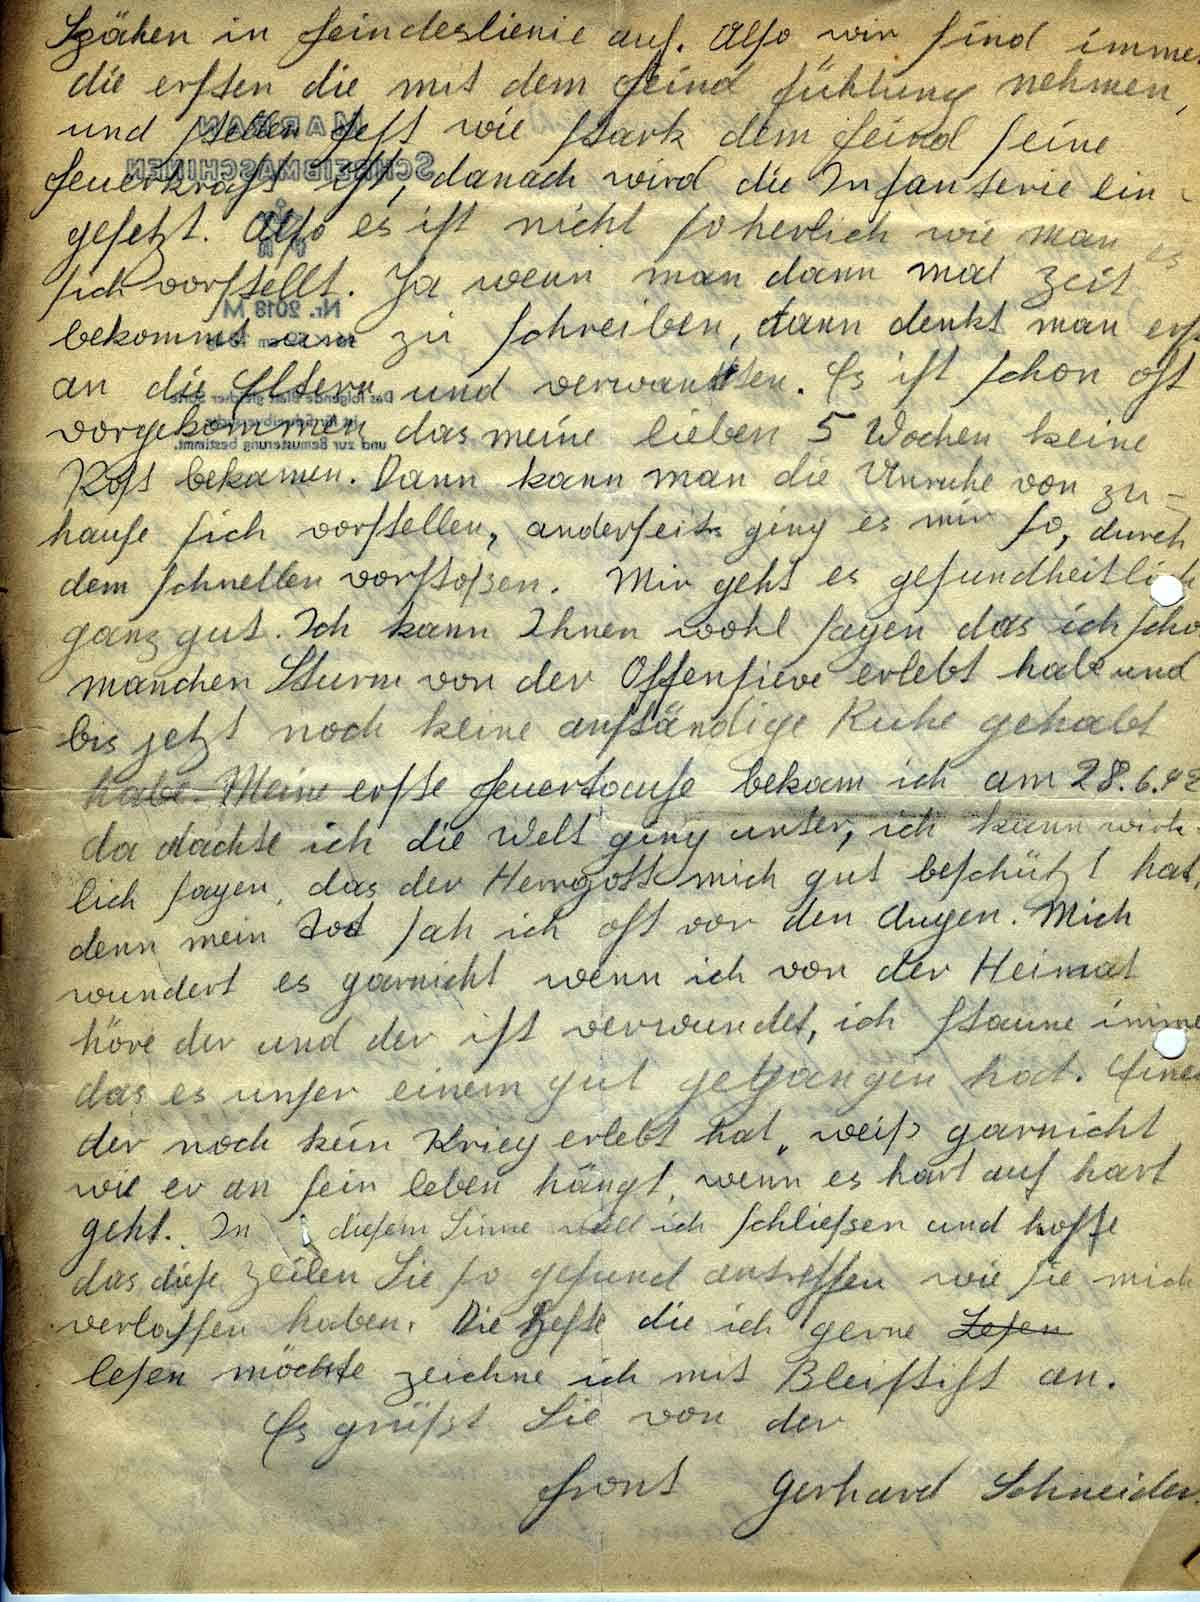 Spähen in feindeslienie auf. Also wir sind immer
die ersten die mit dem feind fühlung nehmen,
und stellen fest wie stark dem feind seine
feuerkraft ist, danach wird die Infanterie ein-
gesetzt. Also es ist nicht so herlich wie man es
sich vorstellt. Ja wenn man dann mal zeit
bekommt zu schreiben, dann denkt man erst
an die Eltern und verwandten. Es ist schon oft
vorgekommen das meine lieben 5 Wochen keine
Post bekamen. Dann kann man die Unruhe von zu-
hause sich vorstellen, anderseits ging es mir so, durch
dem schnellen vorstoßen. Mir geht es gesundheitlich
ganz gut. Ich kann Ihnen wohl sagen das ich scho
manchen Sturm von der Offensieve erlebt habe und
bis jetzt noch keine anständige Ruhe gehabt
habe. Meine erste feuertaufe bekam ich am 28.6.42
da dachte ich die Welt ging unter, ich kann wirk-
lich sagen, das der Herrgott mich gut beschützt hat,
denn mein Tot sah ich oft vor den Augen. Mich
wundert es garnicht wenn ich von der Heimat
höre der und der ist verwundet, ich staune imme
das es unser einem gut gegangen hat. Einer
der noch kein Krieg erlebt hat, weiß garnicht
wie er an sein leben hängt, wenn es hart auf hart
geht. In diesem Sinne will ich schließen und hoffe
das diese zeilen Sie so gesund antreffen wie sie mich
verlassen haben. Die Hefte die ich gerne Lesen
lesen möchte zeichne ich mit Bleistift an.
Es grüßt Sie von der
front Gerhard Schneider
MARKAN
SCHREIBMASCHINEN
Nr. 2018 M
und zur Bemusterung bestimmt.